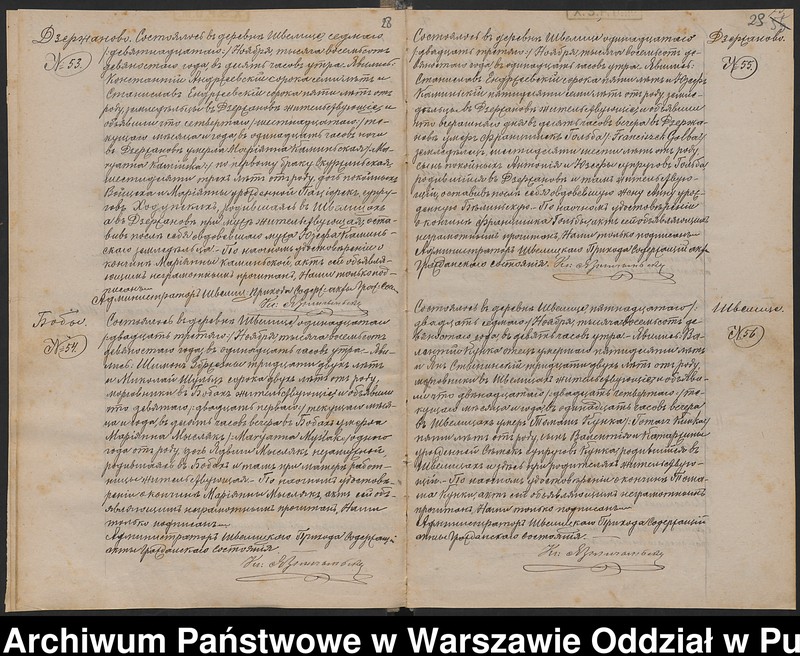 23
Дзержаново.
№ 53.
Состоялось въ деревнѣ Швелице седьмаго
/девятнадцатаго/ Ноября тысяча восемьсотъ
девяностаго года, въ десять часовъ утра. Явились:
Константий Андреевский сорока семи лѣтъ и
Станиславъ Ендреевский сорока пяти лѣтъ отъ
роду, земледѣльцы въ Дзержановѣ жительствующіе, и
объявили что четвертаго /шестнадцатаго/ те-
кущаго мѣсяца и года, въ одинадцать часовъ ночи
въ Дзержановѣ умерла Маріянна Каминская /Ma-
ryanna Kamińska/ по первому браку
шестидесяти лѣтъ отъ роду, дочь покойныхъ
Войцеха и Маріянны урожденной супру-
говъ родившаяся въ Швелицахъ
а въ Дзержановѣ при мужѣ жительствующая; оста-
вивъ послѣ себя овдовевшаго мужа Юзефа Камин-
скаго земледѣльца. По наочномъ удостовѣреніи о
кончинѣ Маріянны Каминской, актъ сей объявля-
ющимъ неграмотнымъ прочитанъ, Нами только под-
писанъ.
Администраторъ Швелиц. Прихода Содерж. акты Граж. Сост.
Бобы.
№ 54.
Состоялось въ деревнѣ Швелице одинадцатаго
/двадцать третьяго/ Ноября тысяча восемьсотъ
девяностаго года, въ одинадцать часовъ утра. Яви-
лись: Шимонъ тридцати двухъ лѣтъ
и Миколай Шульцъ сорока двухъ лѣтъ отъ роду,
въ Бобахъ жительствующіе, и объявили
что девятаго /двадцать перваго/ текущаго мѣся-
ца и года, въ десять часовъ вечера въ Бобахъ умерла
Маріянна Мыслякъ /Maryanna Myślak/ одного
года отъ роду, дочь Мыслякъ незамужной,
родившаяся въ Бобахъ и тамъ при матери работ-
ницы жительствующая. По наочномъ удостовѣ-
реніи о кончинѣ Маріянны Мыслякъ, актъ сей объ-
являющимъ неграмотнымъ прочитанъ, Нами
только подписанъ.
Администраторъ Швелицкаго Прихода Содержащій
акты Гражданскаго состоянія.
23
Дзержаново.
№ 55.
Состоялось въ деревнѣ Швелице одинадцатаго
/двадцать третьяго/ Ноября тысяча восемьсотъ де-
вяностаго года, въ одинадцать часовъ утра. Явились:
Станиславъ Ендреевский сорока пяти лѣтъ и Юзефъ
Каминский пятидесяти лѣтъ отъ роду, земле-
дѣльцы въ Дзержановѣ жительствующіе, и объявили
что вчерашняго дня въ десять часовъ вечера, въ Дзержа-
новѣ умеръ Францишекъ Голба /Franciszek Gołba/
земледѣлецъ, шестидесяти шести лѣтъ отъ роду,
сынъ покойныхъ Антонія и Юзефы супруговъ Голба
родившійся въ Дзержановѣ и тамъ жительствую-
щій; оставивъ послѣ себя овдовевшую жену Анну урож-
денную. По наочномъ удостовѣреніи
о кончинѣ Францишка Голбы, актъ сей объявляющимъ
неграмотнымъ прочитанъ, Нами только подписанъ.
Администраторъ Швелицкаго Прихода Содержащій акты
Гражданскаго состоянія.
Швелице.
№ 56
Состоялось въ деревнѣ Швелице пятнадцатаго /
двадцать седьмаго/ Ноября тысяча восемьсотъ де-
вяностаго года, въ девять часовъ утра. Явились: Ва-
лентий Купка отецъ умершаго пятидесяти лѣтъ
и Янъ тридцати двухъ лѣтъ отъ роду,
въ Швелицахъ жительствующіе, и объяви-
ли что двенадцатаго /двадцать четвертаго/ те-
кущаго мѣсяца и года, въ одинадцать часовъ вечера
въ Швелицахъ умеръ Томашъ Купка /Tomasz Kupka/
пяти лѣтъ отъ роду, сынъ Валентія и Катаржины
урожденной супруговъ Купка, родившійся въ
Швелицахъ и здѣсь при родителяхъ жительствую-
щій. По наочномъ удостовѣреніи о кончинѣ Тома-
ша Купки, актъ сей объявляющимъ неграмотнымъ
прочитанъ, Нами только подписанъ.
Администраторъ Швелицкаго Прихода Содержащій
акты Гражданскаго состоянія.
Archiwum Państwowe w Warszawie Oddział w Pu